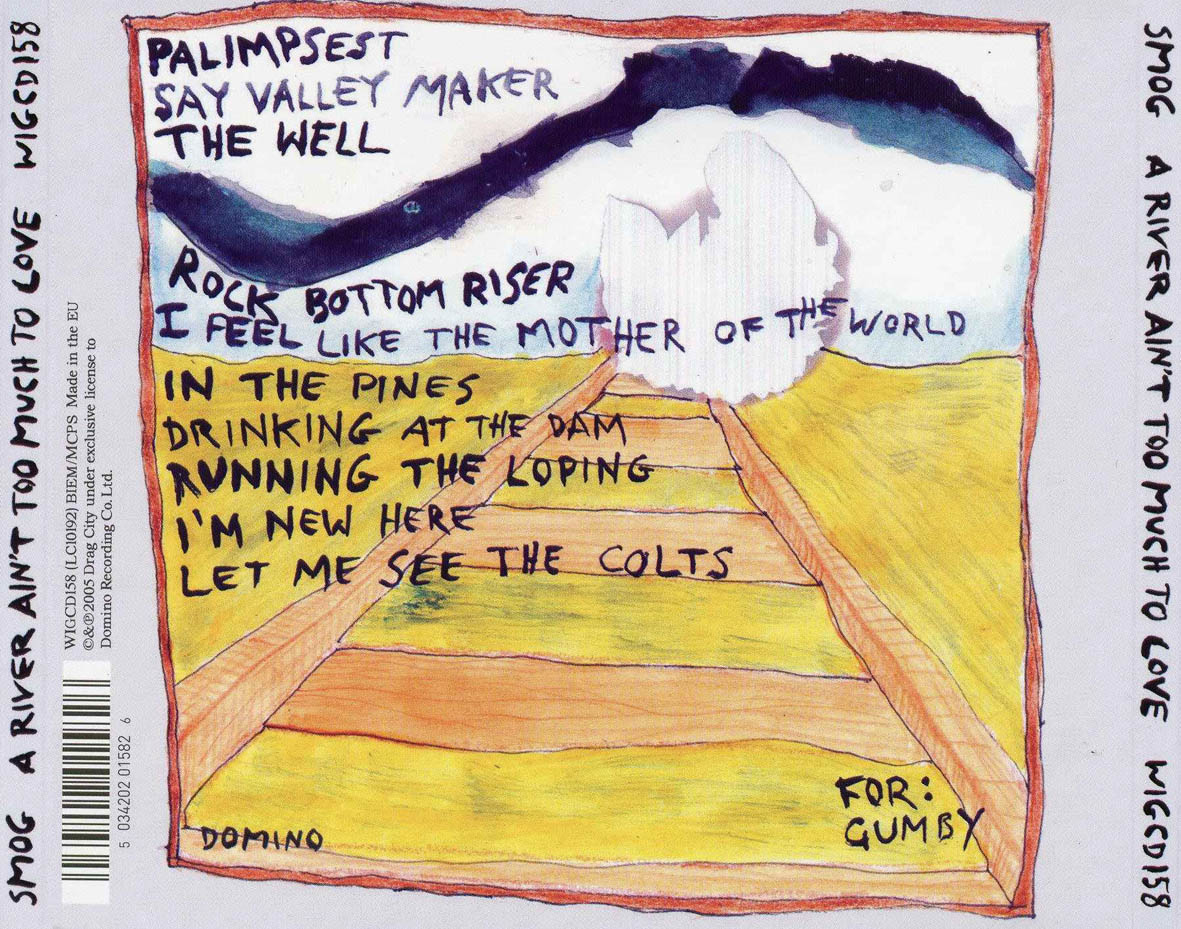 SMOG A RIVER AIN'T TOO MUCH TO LOVE WIGCD158
WIGCD158 (LC10192) BIEM/MCPS Made in the EU
©&℗2005 Drag City under exclusive license to
Domino Recording Co. Ltd.
5 034202 01582 6
PALIMPSEST
SAY VALLEY MAKER
THE WELL
ROCK BOTTOM RISER
I FEEL LIKE THE MOTHER OF THE WORLD
IN THE PINES
DRINKING AT THE DAM
RUNNING THE LOPING
I'M NEW HERE
LET ME SEE THE COLTS
FOR:
GUMBY
DOMINO
SMOG A RIVER AIN'T TOO MUCH TO LOVE WIGCD158